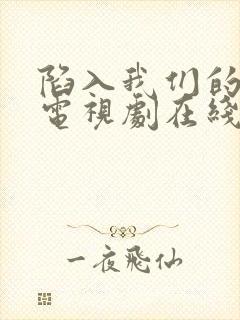 陷入我们的
電視劇在綫
一夜飛仙